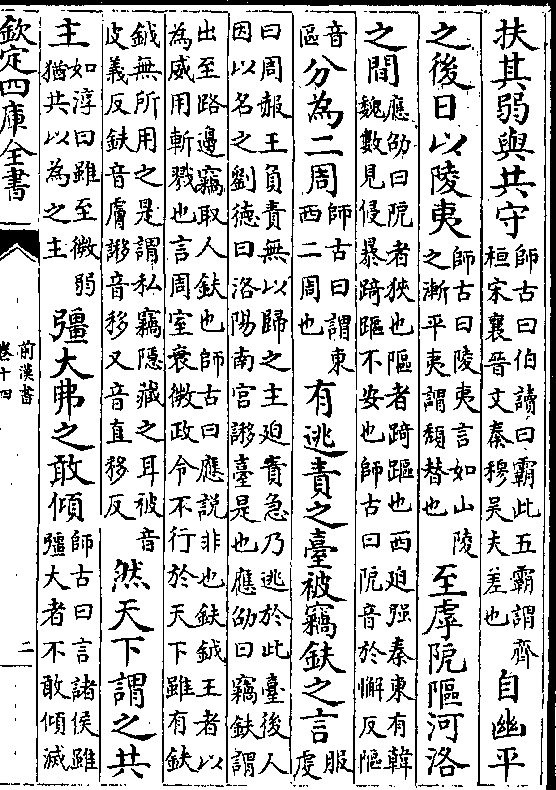 扶其弱與共守師古曰伯讀曰霸此五霸謂齊桓宋襄晉文秦穆吳夫差也自幽平
之後日以陵夷師古曰陵夷言如山陵之漸平夷謂頽替也至虖阸䧢河洛
之間應劭曰阸者狹也䧢者踦䧢也西迫强秦東有韓魏數見侵暴踦䧢不安也師古曰阸音於懈反䧢
音區分為二周師古曰謂東西二周也有逃責之臺被竊鈇之言服虔
曰周赧王負責無以歸之主迫責急乃逃於此臺後人因以名之劉德曰洛陽南宮謻臺是也應劭曰竊鈇謂
出至路邊竊取人鈇也師古曰應説非也鈇鉞王者以為威用斬戮也言周室衰微政令不行於天下雖有鈇
鉞無所用之是謂私竊隱藏之耳被音皮義反鈇音膚謻音移又音直移反然天下謂之共
主如淳曰雖至微弱猶共以為之主彊大弗之敢傾師古曰言諸侯雖彊大者不敢傾滅
欽定四庫全書
前漢書
卷十四
二